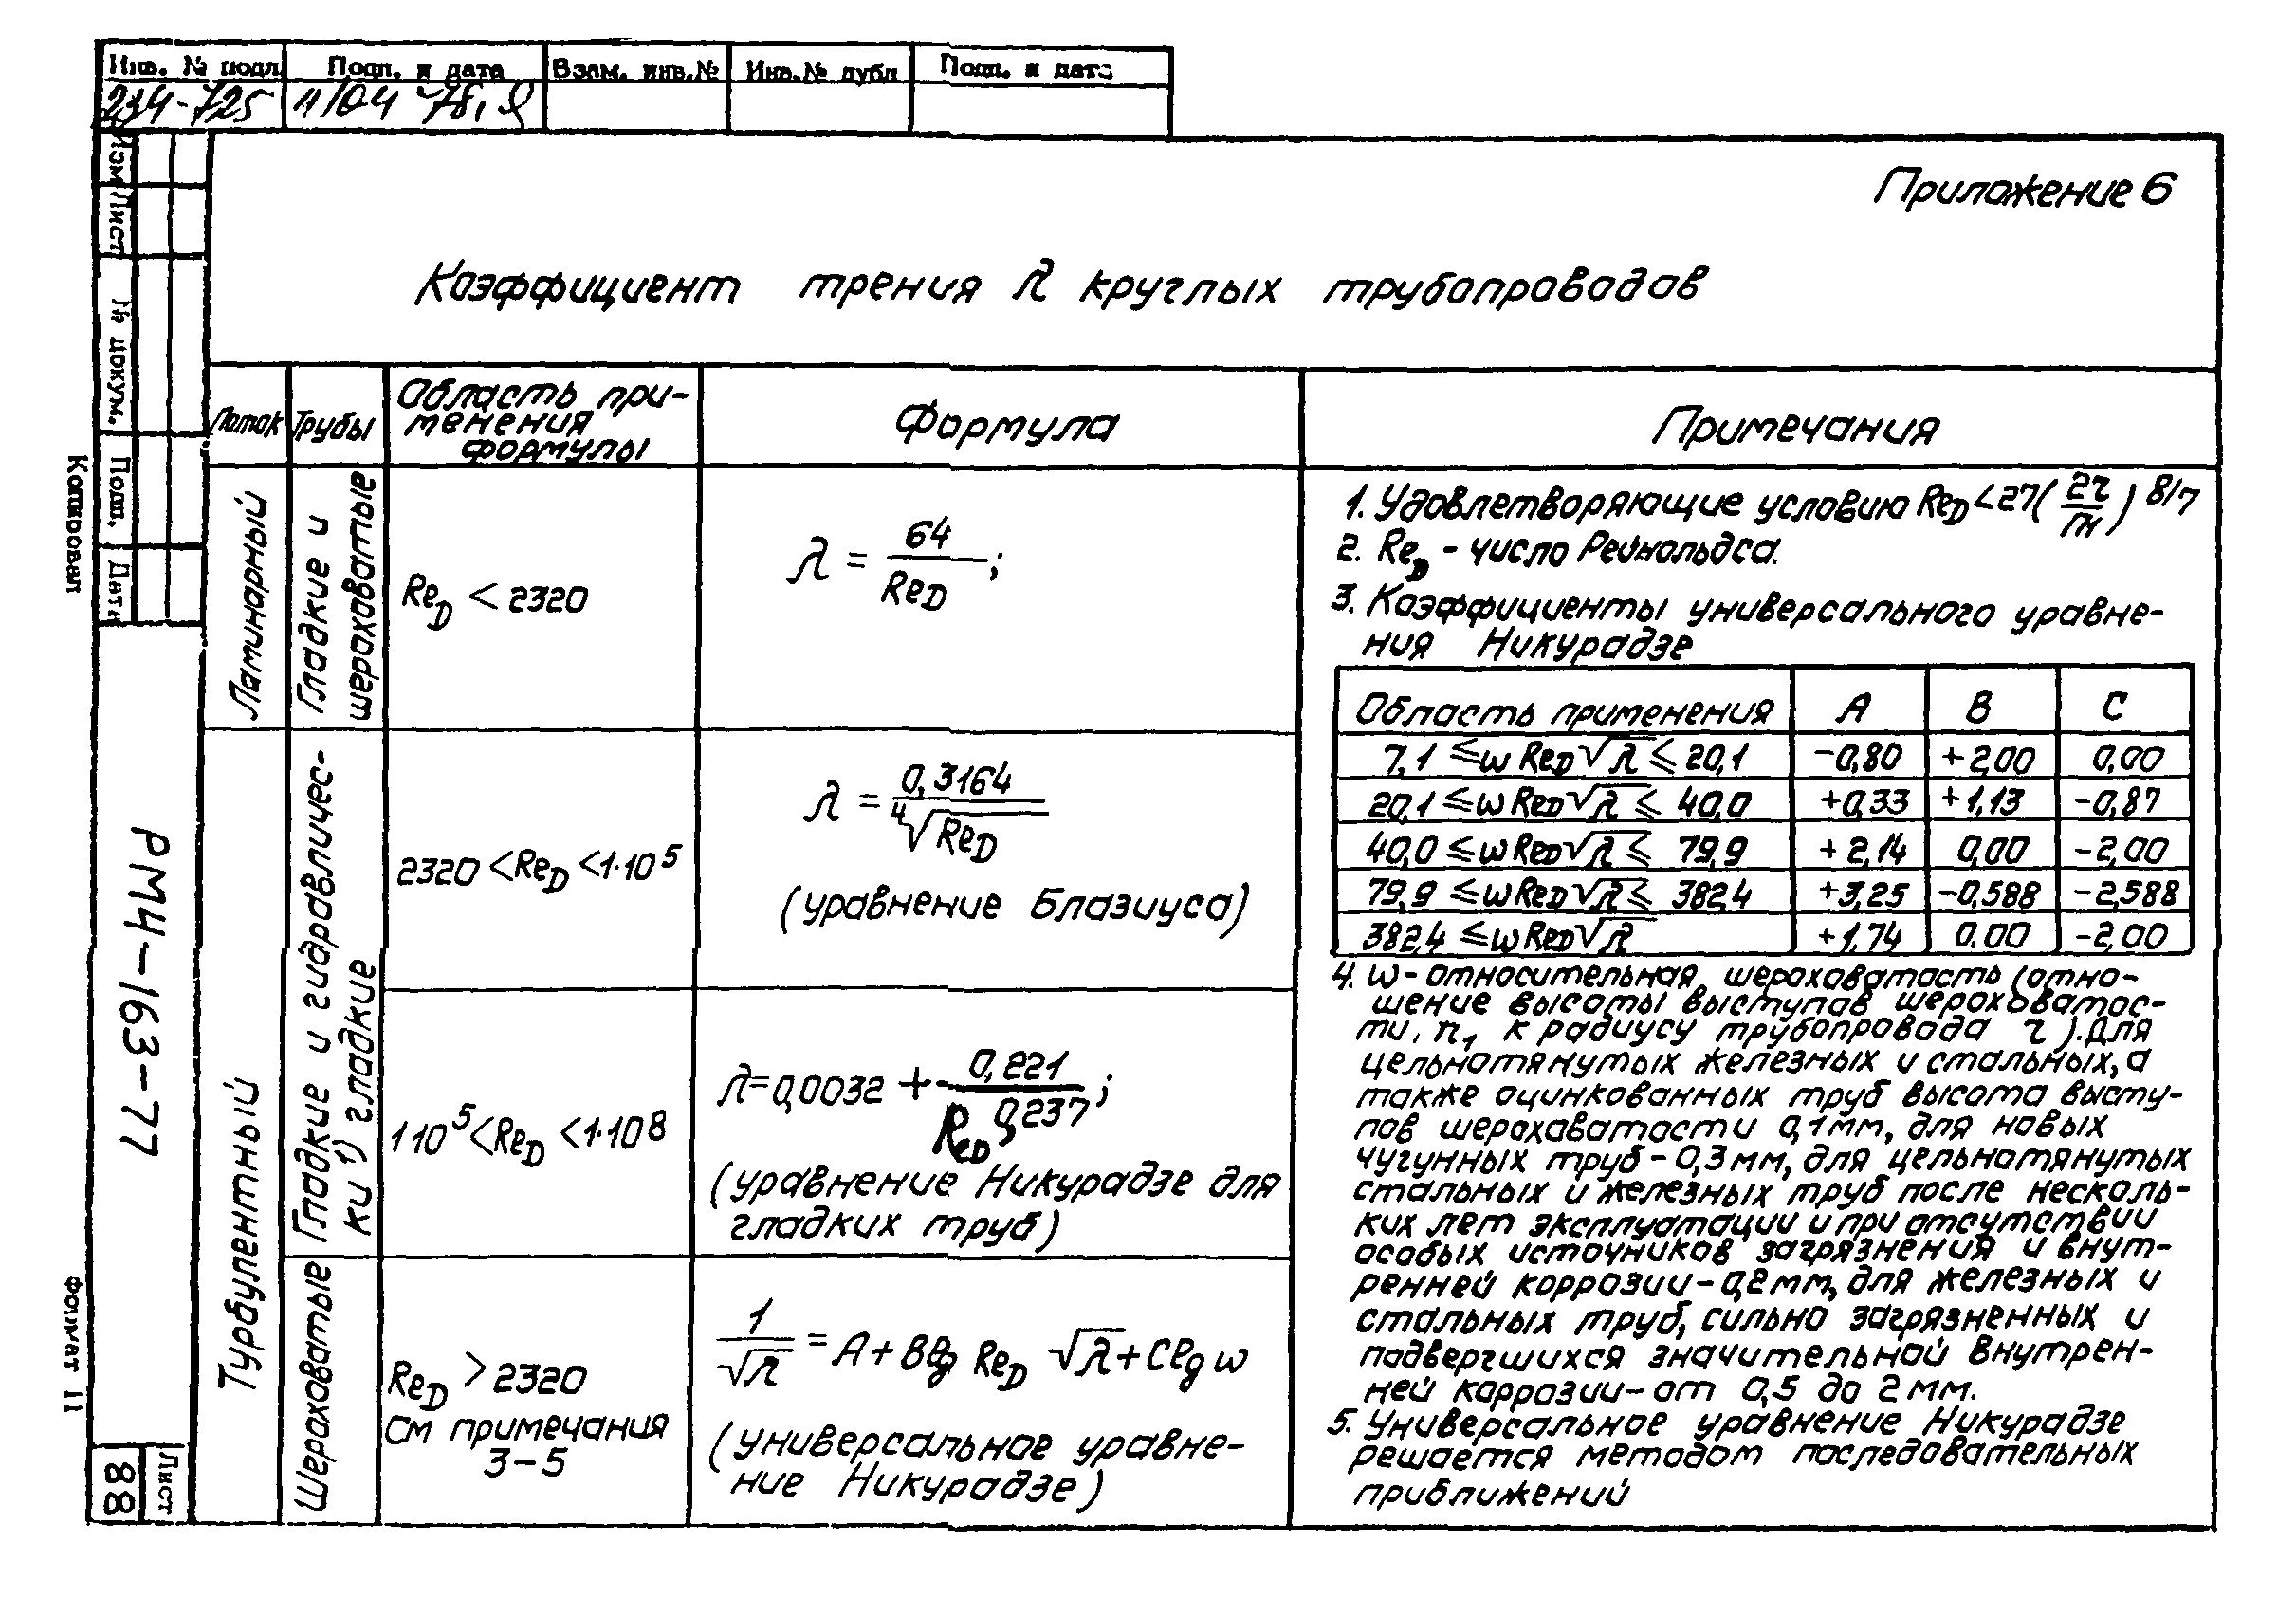 Инв. № подл. Подп. и дата Взам. инв.№ Инв.№ дубл Подп. и дата
234-725 11/04 78г.
Изм Лист № докум. Подп. Дата
Копировал
РМ4-163-77
Формат 11
Лист
88
Приложение 6
Коэффициент трения λ круглых трубопроводов
Поток Трубы Область при-
менения
формулы
Формула
Примечания
Ламинарный
Гладкие и
шероховатые
Re_D < 2320
λ = 64/Re_D;
Турбулентный
Гладкие и гидравличес-
ки 1) гладкие
2320 < Re_D < 1·10^5
λ = 0,3164/⁴√Re_D
(уравнение Блазиуса)
1 10^5 < Re_D < 1·10^8
λ = 0,0032 + 0,221/Re_D^0,237;
(уравнение Никурадзе для
гладких труб)
Шероховатые
Re_D > 2320
См примечания
3-5
1/√λ = A + Blg Re_D √λ + Clg ω
(универсальное уравне-
ние Никурадзе)
1. Удовлетворяющие условию Re_D < 27(2r/n₁)^8/7
2. Re_D - число Рейнольдса.
3. Коэффициенты универсального уравне-
ния Никурадзе
Область применения A B C
7,1 ≤ ω Re_D √λ ≤ 20,1 -0,80 +2,00 0,00
20,1 ≤ ω Re_D √λ ≤ 40,0 +0,33 +1,13 -0,87
40,0 ≤ ω Re_D √λ ≤ 79,9 +2,14 0,00 -2,00
79,9 ≤ ω Re_D √λ ≤ 382,4 +3,25 -0,588 -2,588
382,4 ≤ ω Re_D √λ +1,74 0.00 -2,00
4. ω - относительная шероховатость (отно-
шение высоты выступов шероховатос-
ти, n₁ к радиусу трубопровода r). Для
цельнотянутых железных и стальных, а
также оцинкованных труб высота высту-
пов шероховатости 0,1 мм, для новых
чугунных труб - 0,3 мм, для цельнотянутых
стальных и железных труб после несколь-
ких лет эксплуатации и при отсутствии
особых источников загрязнения и внут-
ренней коррозии - 0,2 мм, для железных и
стальных труб, сильно загрязненных и
подвергшихся значительной внутрен-
ней коррозии - от 0,5 до 2 мм.
5. Универсальное уравнение Никурадзе
решается методом последовательных
приближений